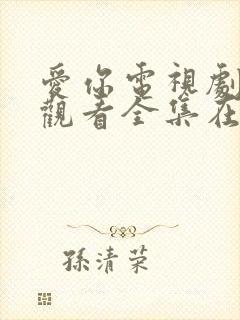 愛你電視劇
觀看全集在
孫清荣